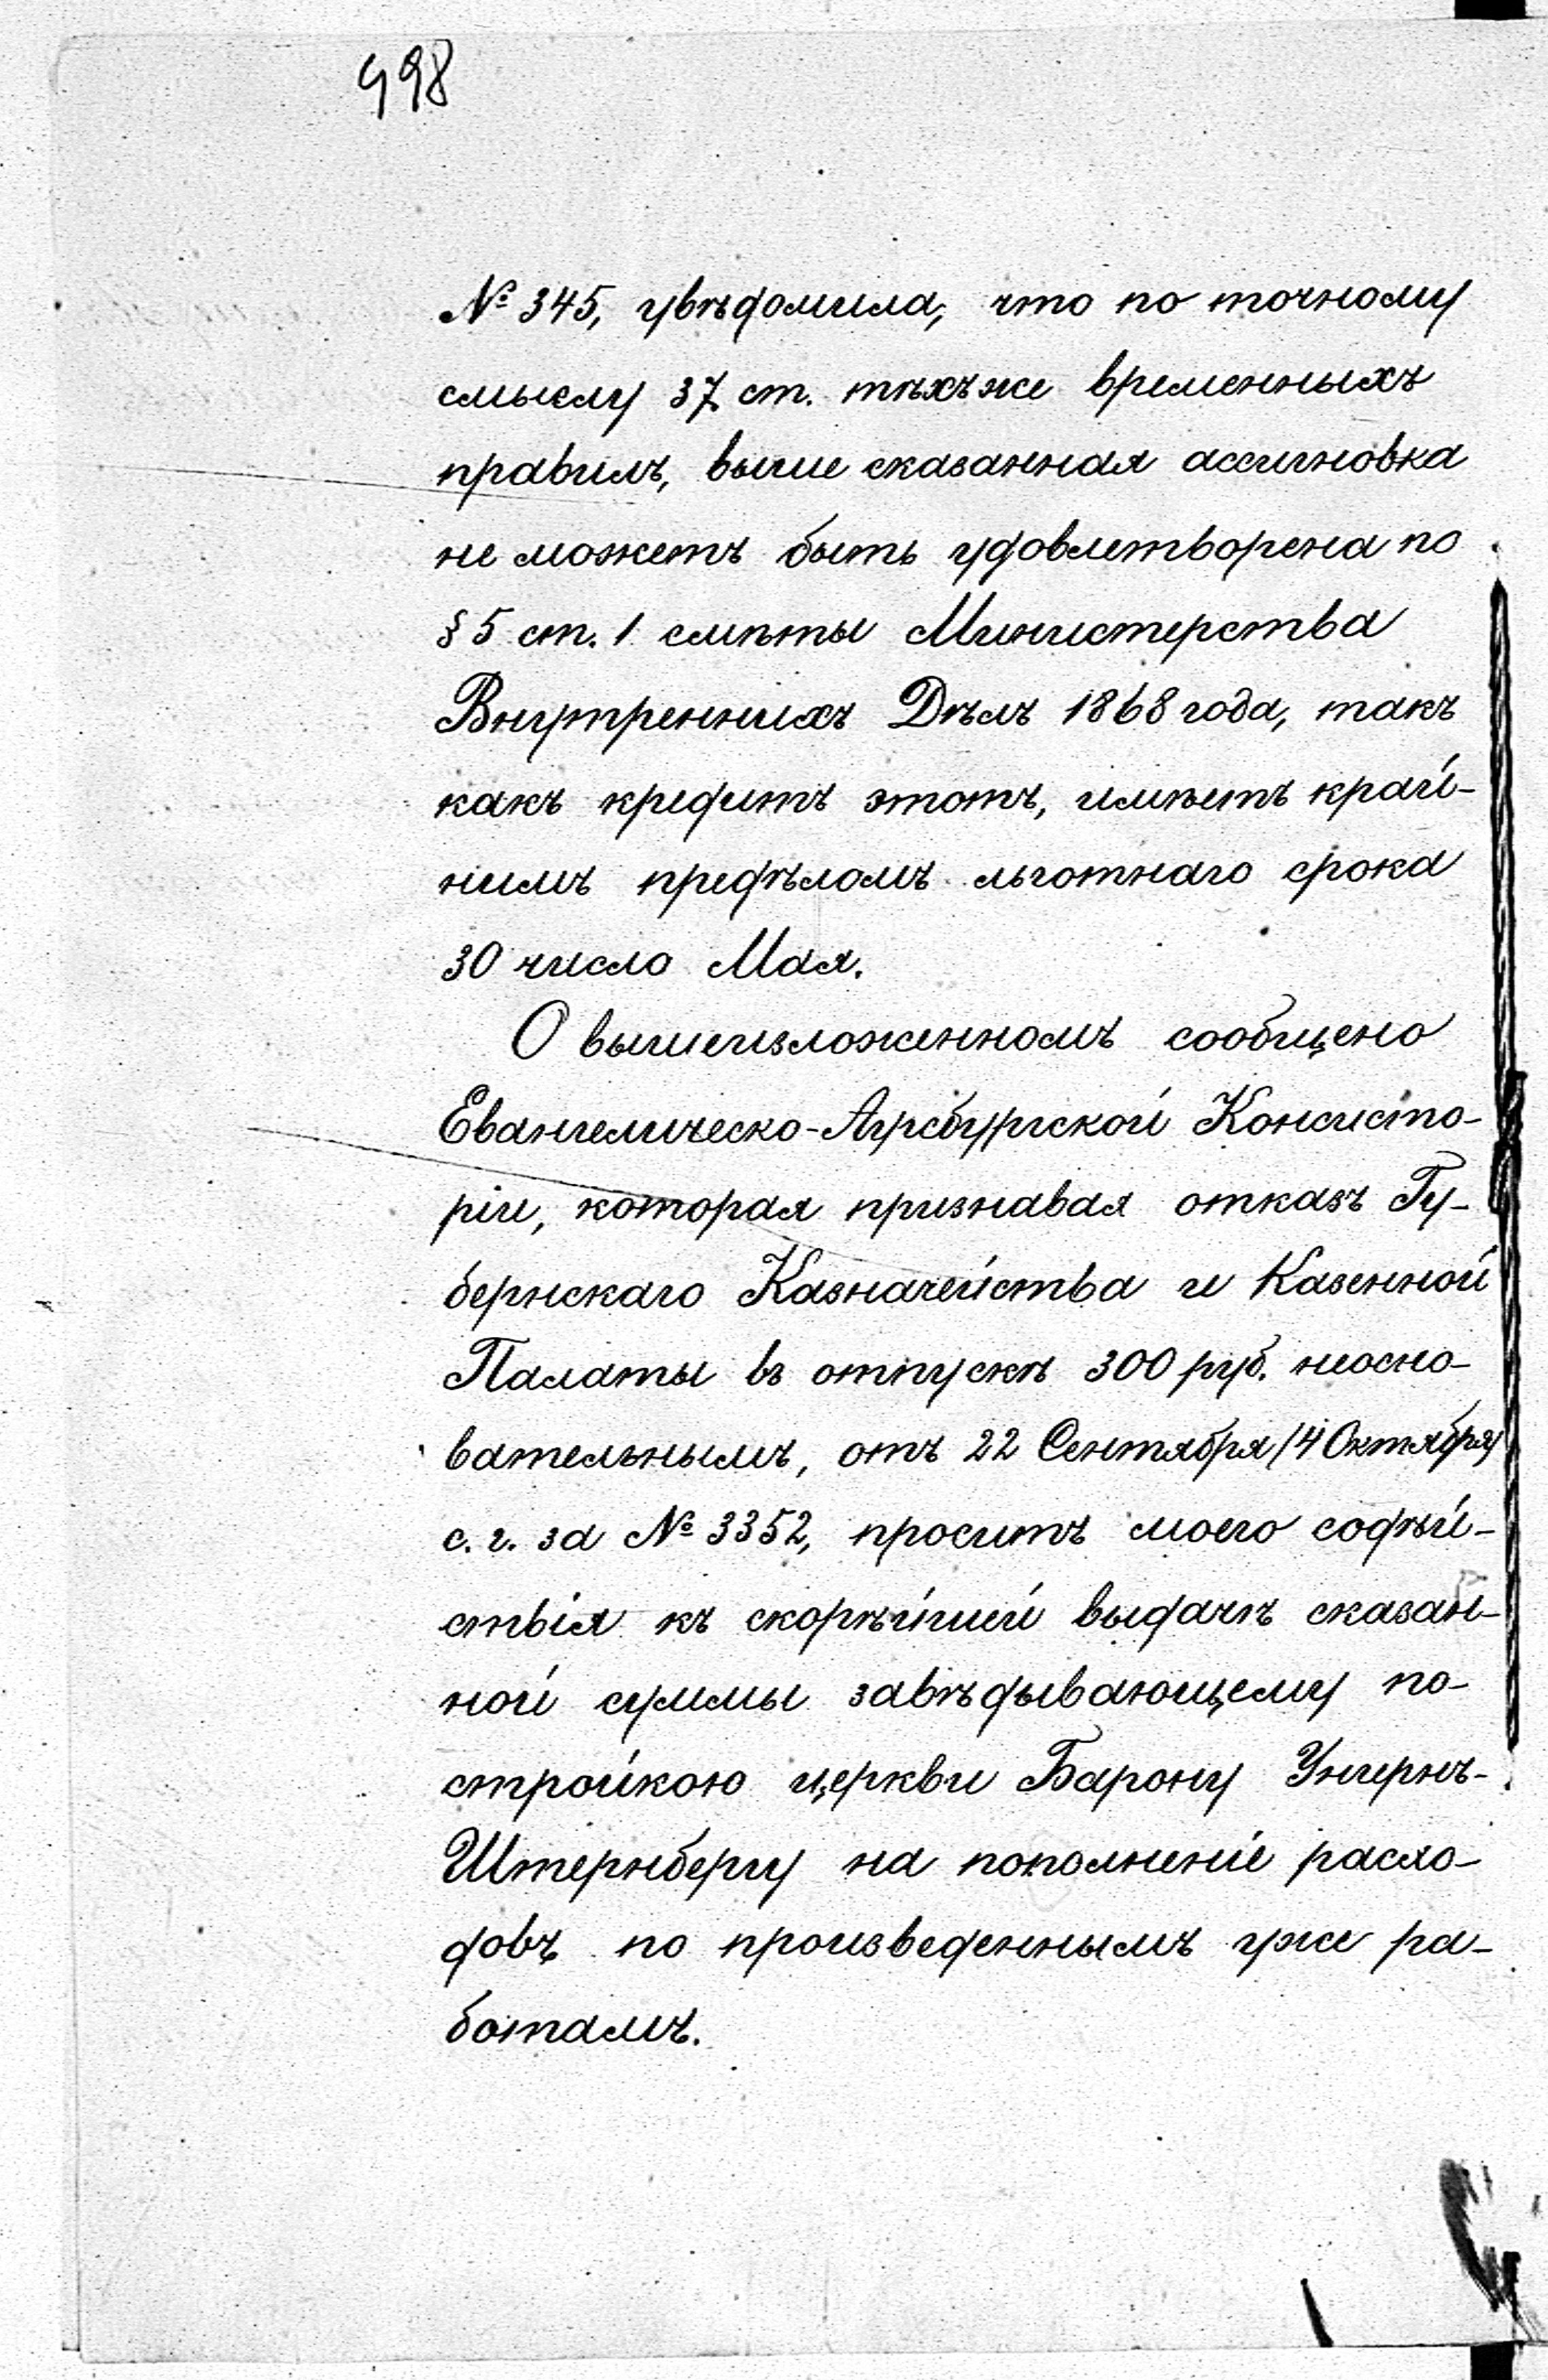 498
№ 345, увѣдомила, что по точному
смыслу 37 ст. тѣхъже временныхъ
правилъ, выше сказанная ассигновка
не можетъ быть удовлетворена по
§ 5 ст. 1 смѣты Министерства
Внутреннихъ Дѣлъ 1868 года, такъ
какъ кредитъ этотъ, имѣетъ край-
нимъ предѣломъ льготнаго срока
30 число Мая.
О вышеизложенномъ сообщено
Евангелическо-Аугсбургской Консисто-
ріи, которая признавая отказъ Гу-
бернскаго Казначейства и Казенной
Палаты въ отпускѣ 300 руб. неосно-
вательнымъ, отъ 22 Сентября/4 Октября
с. г. за № 3352, проситъ моего содѣй-
ствія къ скорѣйшей выдачѣ сказан-
ной суммы завѣдывающему по-
стройкою церкви Барону Унгернъ-
Штернбергу на пополненіе расхо-
довъ по произведеннымъ уже ра-
ботамъ.